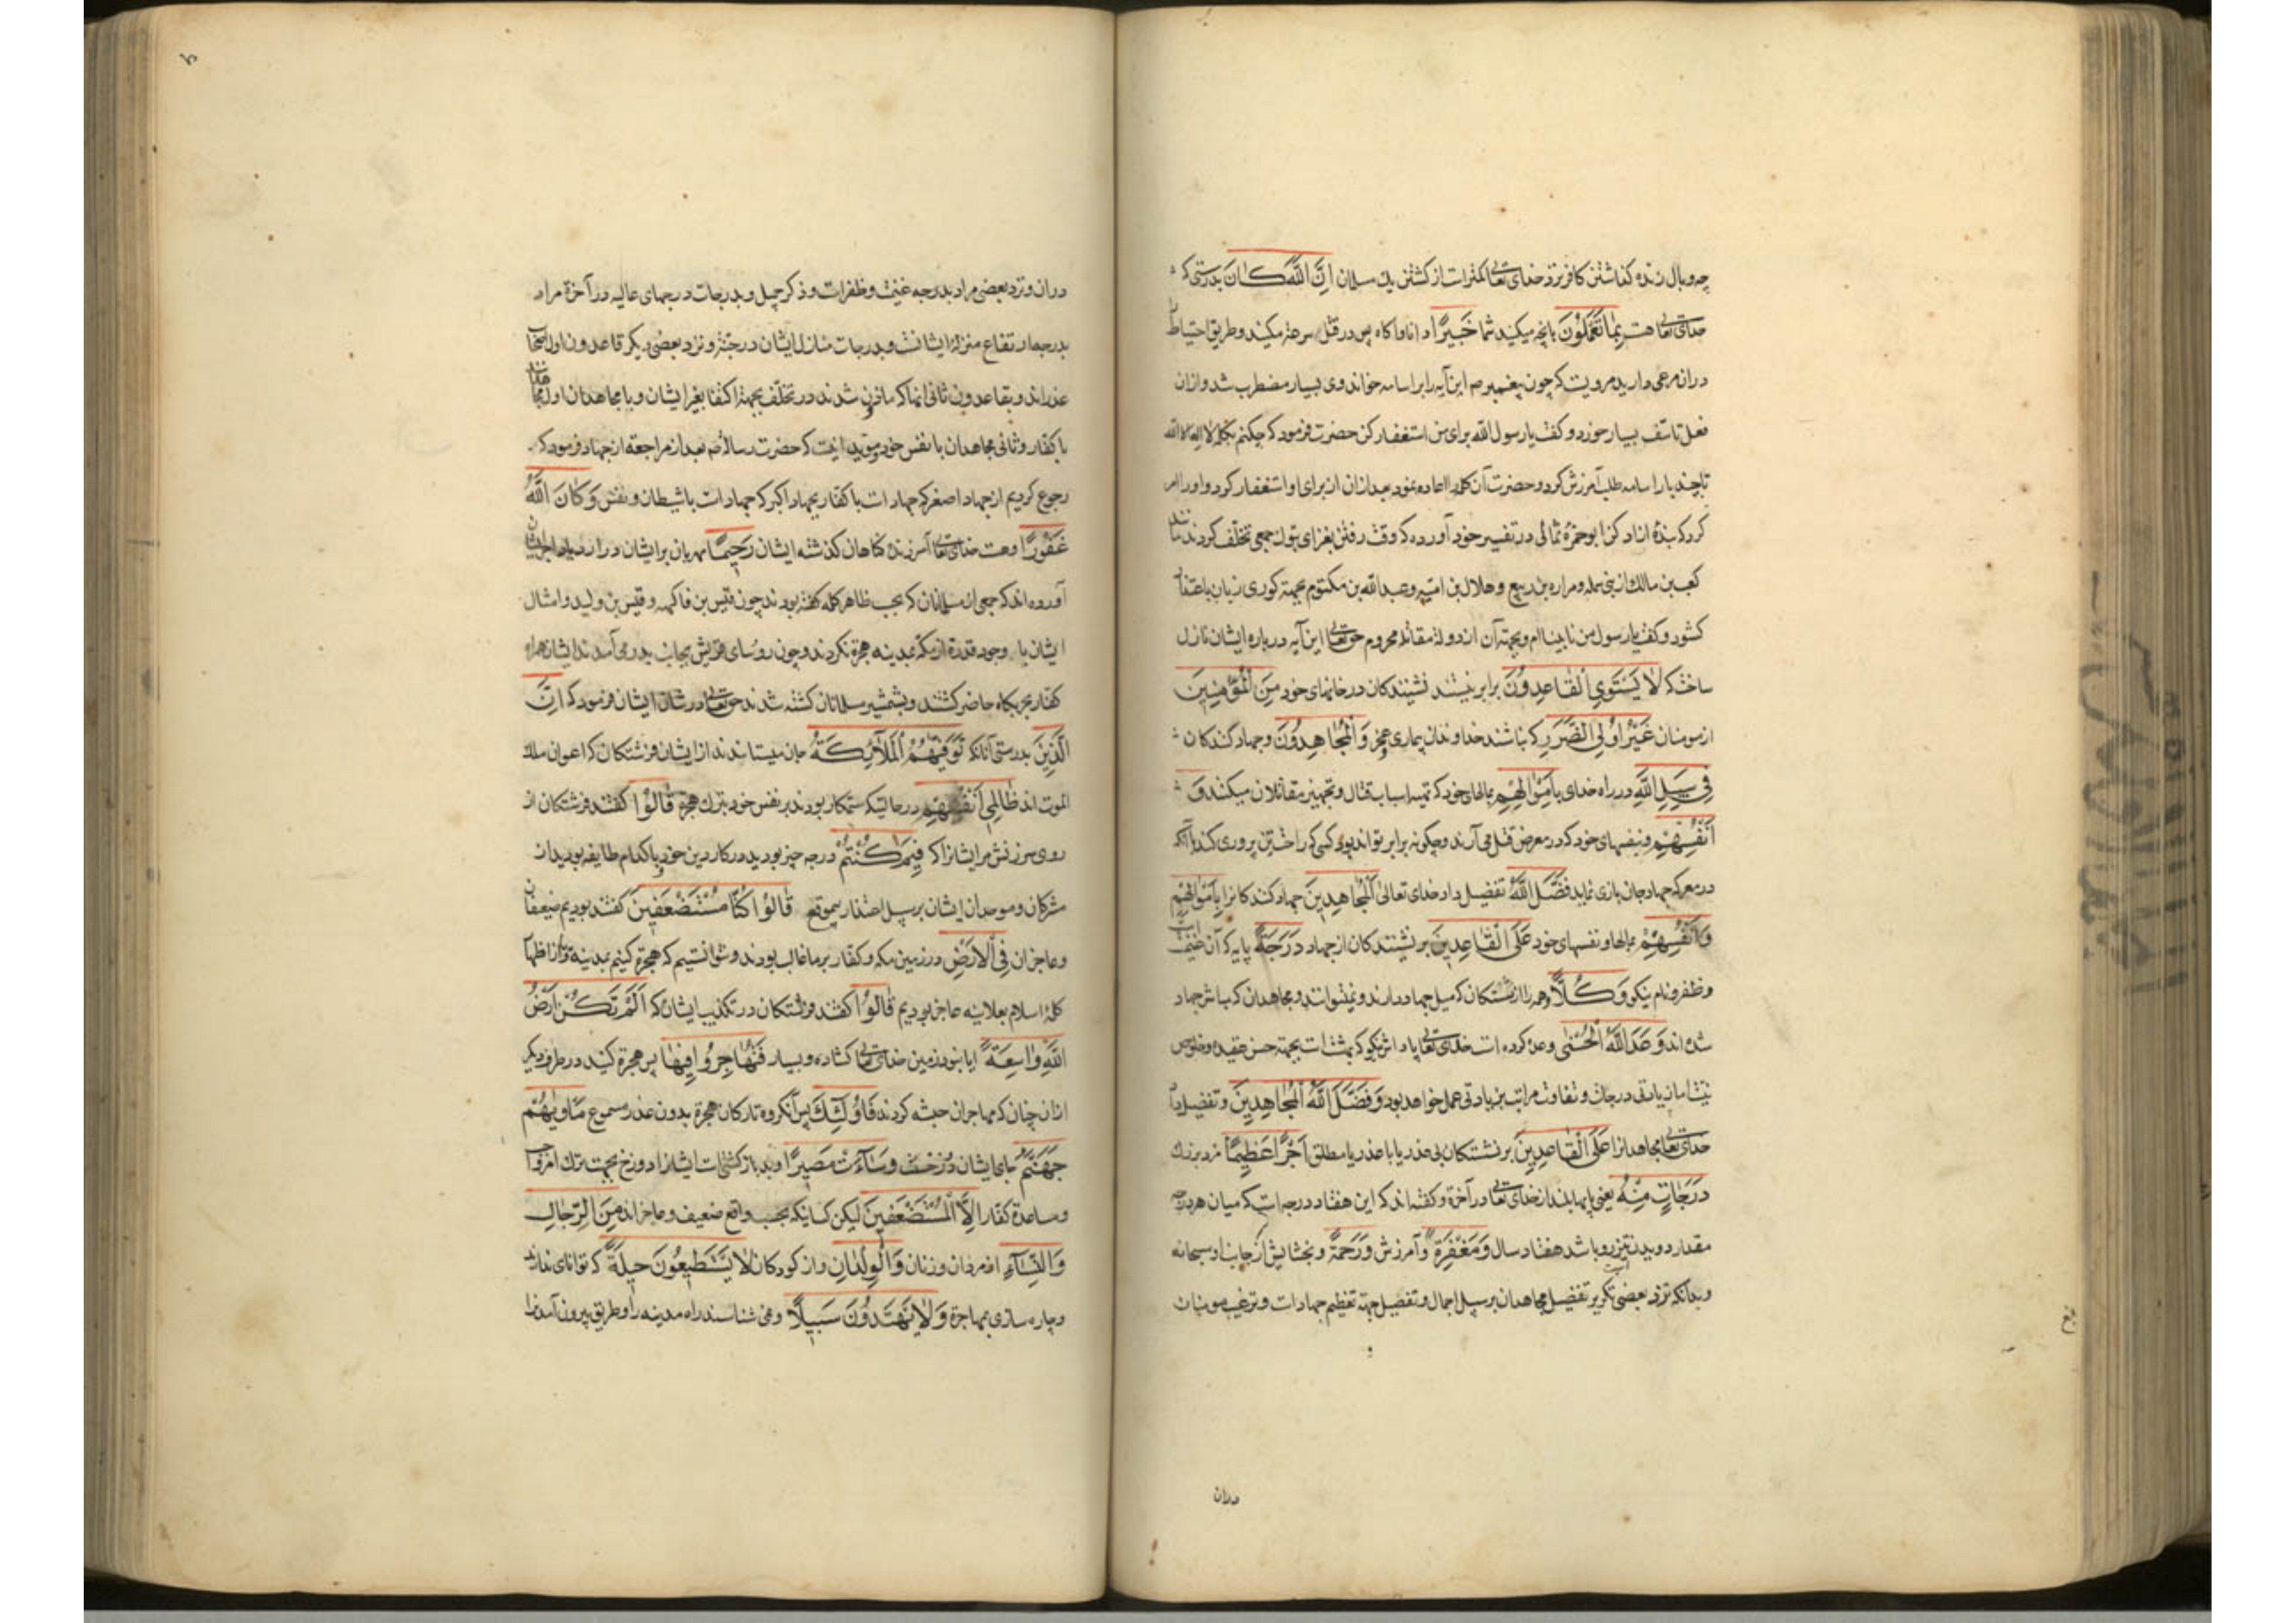 چه وبال زنده کذاشتن کافر نزد خدای تعالی کمتر است از کشتن یک مسلمان اِنَّ اللّٰهَ كَانَ بدرستی که
خدای تعالی هست بِمَا تَعْمَلُونَ بانچه میکنید شما خَبِيرًا دانا و اکاه پس در قتل سرعة مکنید و طریق احتیاط
دران مرعی دارید مرویست که چون پیغمبر صم این آیه را بر اسامه خواند وی بسیار مضطرب شد و ازان
فعل تاسف بسیار خورد و کفت یا رسول الله برای من استغفار کن حضرت فرمود که چکنم بکلمه لا اله الا الله
تا چند بار اسامه طلب آمرزش کرد و حضرت آن کلمه را اعاده نمود بعد ازان از برای او استغفار کرد و او را امر
کرد که بندهٔ ازاد کن ابو حمزهٔ ثمالی در تفسیر خود آورده که وقت رفتن بغزای تبوک جمعی تخلف کردند مانند
کعب بن مالک از بنی سلمه و مراره بن ربیع و هلال بن امیه و عبدالله بن مکتوم بجهة کوری زبان باعتذار
کشود و کفت یا رسول من نابیناام و بجهة آن از دولة مقاتله محروم حق تعالی این آیه درباره ایشان نازل
ساخت که لَا يَسْتَوِي الْقَاعِدُونَ برابر نیستند نشینندکان در خانهای خود مِنَ الْمُؤْمِنِينَ
از مومنان غَيْرُ اُولِي الضَّرَرِ که نباشند خداوندان بیماری و عجز وَالْمُجَاهِدُونَ و جهاد کنندکان
فِي سَبِيلِ اللّٰهِ در راه خدای بِاَمْوَالِهِمْ بمالهای خود که تهیه اسباب قتال و تجهیز مقاتلان میکنند وَ
اَنْفُسِهِمْ و بنفسهای خود که در معرض قتل می آرند و چکونه برابر تواند بود کسی که راحت تن پروری کند با آنکه
در معرکه جهاد جان بازی نماید فَضَّلَ اللّٰهُ تفضیل داد خدای تعالی الْمُجَاهِدِينَ جهاد کنندکانرا بِاَمْوَالِهِمْ
وَاَنْفُسِهِمْ بمالها و نفسهای خود عَلَى الْقَاعِدِينَ بر نشینندکان از جهاد دَرَجَةً پایه که آن غنیمت است
و ظفر و نام نیکو وَكُلًّا و همه را از نشستکان که میل جهاد دارند و نمیتوانند و مجاهدان که مباشر جهاد
شده اند وَعَدَ اللّٰهُ الْحُسْنٰى وعده کرده است خدای تعالی پاداش نیکو که بهشت است بجهة حسن عقیده و خلوص
نیت اما زیادتی درجات و تفاوت مراتب بزیادتی عمل خواهد بود وَفَضَّلَ اللّٰهُ الْمُجَاهِدِينَ و تفضیل داد
خدای تعالی مجاهدانرا عَلَى الْقَاعِدِينَ بر نشستکان بی عذر یا با عذر یا مطلق اَجْرًا عَظِيمًا مزد بزرک
دَرَجَاتٍ مِنْهُ یعنی پایها بلند از خدای تعالی در آخرة و کفته اند که این هفتاد درجه است که میان هر درجه
مقدار دویدن تیزرو باشد هفتاد سال وَمَغْفِرَةً و آمرزش وَرَحْمَةً و بخشایش از جانب او سبحانه
و بدانکه نزد بعضی تکریر تفضیل مجاهدان بر سبیل اجمال و تفضیل جهة تعظیم جهاد است و ترغیب مومنان
دران
دران و نزد بعضی مراد بدرجه غنیمت و ظفر است و ذکر جمیل و بدرجات درجهای عالیه در آخرة مراد
بدرجه ارتفاع منزلة ایشانست و بدرجات منازل ایشان در جنة و نزد بعضی دیکر قاعدون اول اصحاب
عذراند و بقاعدون ثانی انها که ماذون شدند در تخلف بجهة اکتفا بغیر ایشان و یا مجاهدان اول مجاهدانند
با کفار و ثانی مجاهدان با نفس خود و موید اینست که حضرت رسالة صم بعد از مراجعه از جهاد فرمود که
رجوع کردیم از جهاد اصغر که جهاد است با کفار بجهاد اکبر که جهاد است با شیطان و نفس وَكَانَ اللّٰهُ
غَفُورًا و هست خدای تعالی آمرزنده کناهان کذشته ایشان رَحِيمًا مهربان بر ایشان در ازدیاد اجر ایشان
آورده اند که جمعی از مسلمانان که بحسب ظاهر کلمه کفته بودند چون قیس بن فاکهه و قیس بن ولید و امثال
ایشان با وجود قدرة از مکه بمدینه هجرة نکردند و چون روسای قریش بجانب بدر می آمدند ایشان همراه
کفار بحربکاه حاضر کشتند و بشمشیر مسلمانان کشته شدند حق تعالی در شان ایشان فرمود که اِنَّ
الَّذِينَ بدرستی آنانکه تَوَفّٰيهُمُ الْمَلَآئِكَةُ جان میستانند از ایشان فرشتکان که اعوان ملک
الموت اند ظَالِمِي اَنْفُسِهِمْ در حالتیکه ستمکار بودند بر نفس خود بترک هجرة قَالُوا کفتند فرشتکان از
روی سرزنش مر ایشانرا که فِيمَ كُنْتُمْ در چه چیز بودید در کار دین خود و با کدام طایفه بودید از
مشرکان و موحدان ایشان بر سبیل اعتذار بیموقع قَالُوا كُنَّا مُسْتَضْعَفِينَ کفتند بودیم ضعیفان
و عاجزان فِي الْاَرْضِ در زمین مکه و کفار بر ما غالب بودند و نتوانستیم که هجرة کنیم بمدینه و از اظهار
کلمهٔ اسلام بعلانیه عاجز بودیم قَالُوا کفتند فرشتکان در تکذیب ایشان که اَلَمْ تَكُنْ اَرْضُ
اللّٰهِ وَاسِعَةً ایا نبود زمین خدای تعالی کشاده و بسیار فَتُهَاجِرُوا فِيهَا پس هجرة کنید در طرف دیکر
ازان چنان که مهاجران حبشه کردند فَاُولٰئِكَ پس آنکروه تارکان هجرة بدون عذر مسموع مَأْوٰيهُمْ
جَهَنَّمُ جای ایشان دوزخست وَسَآءَتْ مَصِيرًا و بد باز کشتی است ایشانرا دوزخ بجهت ترک امر واجب
و مساعدة کفار اِلَّا الْمُسْتَضْعَفِينَ لیکن کسانیکه بحسب واقع ضعیف و عاجزاند مِنَ الرِّجَالِ
وَالنِّسَآءِ از مردان و زنان وَالْوِلْدَانِ و از کودکان لَا يَسْتَطِيعُونَ حِيلَةً که توانای ندارند
و چاره سازی بمهاجرة وَلَا يَهْتَدُونَ سَبِيلًا و نمی شناسند راه مدینه را و طریق بیرون آمدنرا